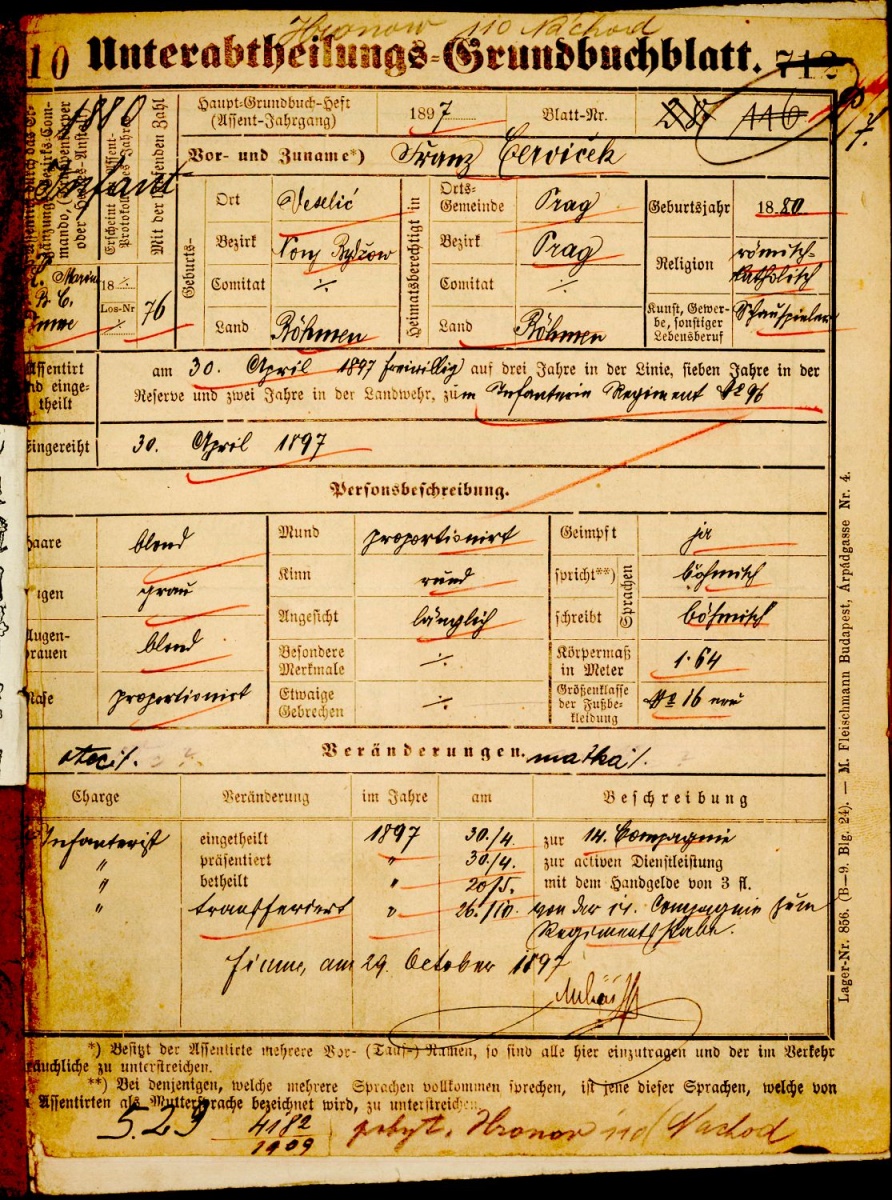 Hronow 110 Náchod
10 Unterabtheilungs-Grundbuchblatt. 712
1880
Haupt-Grundbuch-Heft
(Assent-Jahrgang)
1897
Blatt-Nr.
28 116
Vor- und Zuname*) Franz Červiček
Geburts-
Ort Veselič
Bezirk Neu Bydžow
Comitat ·/.
Land Böhmen
Heimatsberechtigt in
Orts-
Gemeinde Prag
Bezirk Prag
Comitat ·/.
Land Böhmen
Geburtsjahr 1880
Religion römisch-
katholisch
Kunst, Gewer-
be, sonstiger
Lebensberuf Schauspieler
mando, (Truppenkörper
oder Heeres-Anstalt)
Erscheint im Assent-
Protokolle des Jahres
Mit der laufenden Zahl
18 ·/.
Los-Nr
·/.
76
Assentirt
und einge-
theilt
am 30. April 1897 freiwillig auf drei Jahre in der Linie, sieben Jahre in der
Reserve und zwei Jahre in der Landwehr, zum Infanterie Regiment № 96
Eingereiht 30. April 1897
Personsbeschreibung.
Haare blond
Augen grau
Augen-
brauen blond
Nase proportionirt
Mund proportionirt
Kinn rund
Angesicht länglich
Besondere
Merkmale ·/.
Etwaige
Gebrechen ·/.
Geimpft ja
spricht**) böhmisch
schreibt böhmisch
Sprachen
Körpermaß
in Meter 1·64
Größenklasse
der Fußbe-
kleidung № 16 neu
otec †. Veränderungen. matka †.
Charge Veränderung im Jahre am Beschreibung
Infanterist eingetheilt 1897 30./4. zur 14. Compagnie
" präsentirt " 30./4. zur activen Dienstleistung
" betheilt " 20/5. mit dem Handgelde von 3 fl.
" transferiert " 26./10. von der 14. Compagnie zum
Regimentsstabe.
Fiume, am 29. October 1897
*) Besitzt der Assentirte mehrere Vor- (Tauf-) Namen, so sind alle hier einzutragen und der im Verkehr
gebräuchliche zu unterstreichen.
**) Bei denjenigen, welche mehrere Sprachen vollkommen sprechen, ist jene dieser Sprachen, welche von
Assentirten als Muttersprache bezeichnet wird, zu unterstreichen.
5.29 4182
1909
pobyt. Hronov Nachod
Lager-Nr. 856. (B—9. Blg. 24). — M. Fleischmann Budapest, Árpádgasse Nr. 4.